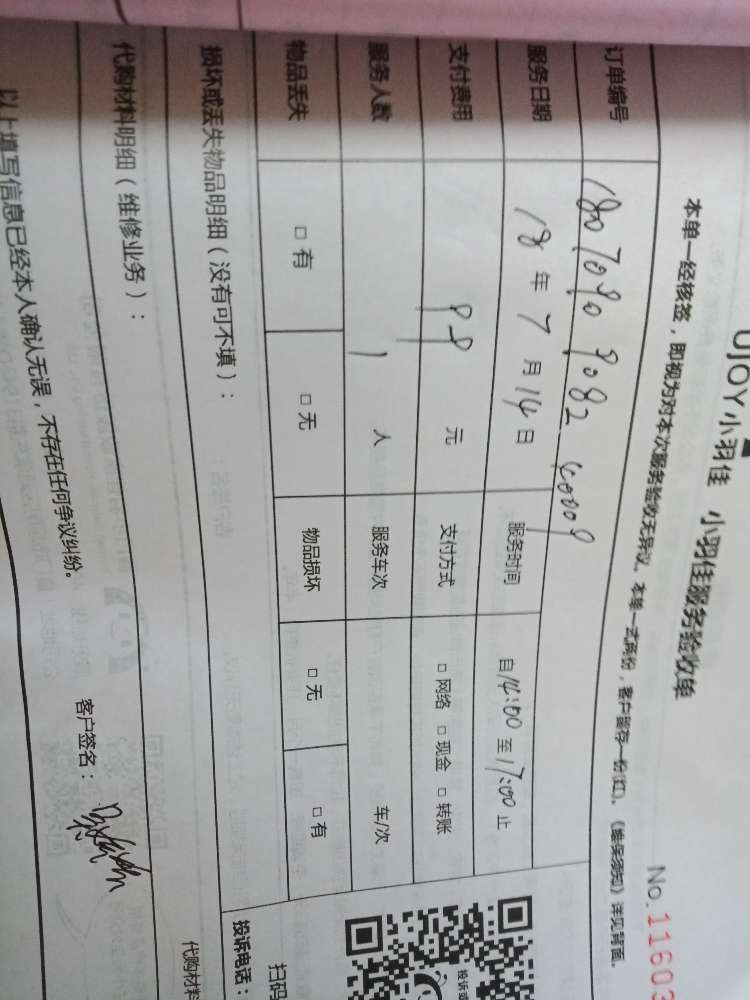 UJOY小羽佳 小羽佳服务验收单
No.11603
本单一经核签，即视为对本次服务验收无异议。本单一式两份，客户留存一份(红)。《维保须知》详见背面。
订单编号 180709090824009
服务日期 18年7月14日 服务时间 自14:00至17:00止
支付费用 99元 支付方式 □网络 □现金 □转账
服务人数 1人 服务车次 车/次
物品丢失 □有 □无 物品损坏 □无 □有
损坏或丢失物品明细（没有可不填）：
代购材料明细（维修业务）：
代购材料
以上填写信息已经本人确认无误，不存在任何争议纠纷。
客户签名：
扫码
投诉电话：